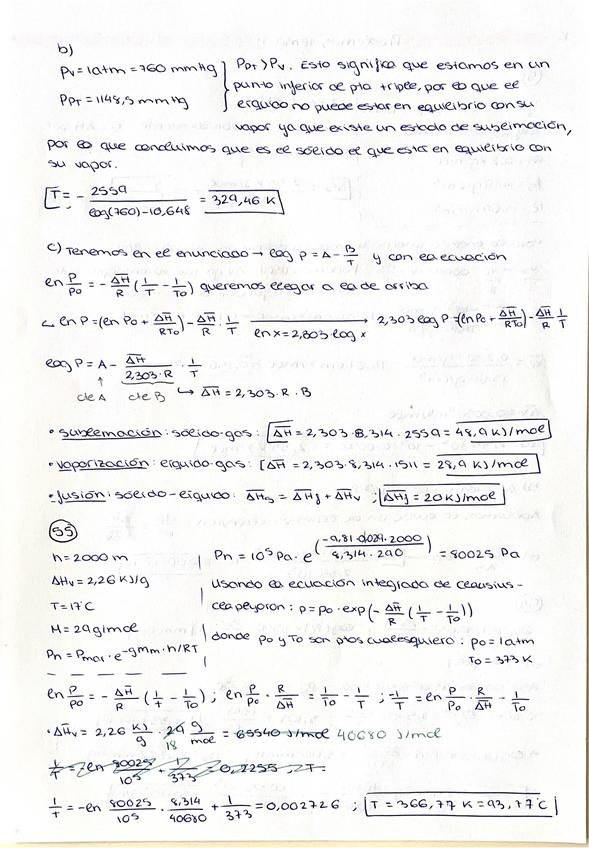 b)
Pv = 1atm = 760 mmHg } PPT > Pv. Esto significa que estamos en un
PPT = 1148,5 mmHg punto inferior de pto triple, por lo que el
líquido no puede estar en equilibrio con su
vapor ya que existe un estado de sublimación,
por lo que concluimos que es el sólido el que está en equilibrio con
su vapor.
T = - 2559 / (log(760) - 10,648) = 329,46 K
c) Tenemos en el enunciado → log P = A - B/T y con la ecuación
ln P/Po = - ΔH/R (1/T - 1/To) queremos llegar a la de arriba
↳ ln P = (ln Po + ΔH/RTo) - ΔH/R · 1/T ln x = 2,303 log x → 2,303 log P = (ln Po + ΔH/RTo) - ΔH/R 1/T
log P = A - ΔH/(2,303·R) · 1/T
cte A cte B ↳ ΔH = 2,303 · R · B
• sublimación: sólido-gas: ΔH = 2,303 · 8,314 · 2559 = 48,9 kJ/mol
• vaporización: líquido-gas: ΔH = 2,303 · 8,314 · 1511 = 28,9 kJ/mol
• fusión: sólido-líquido: ΔHs = ΔHf + ΔHv ; ΔHf = 20 kJ/mol
55
h = 2000 m Ph = 10⁵ Pa · e^(-9,81·0,029·2000 / 8,314·290) = 80025 Pa
ΔHv = 2,26 KJ/g Usando la ecuación integrada de clausius-
T = 17°C clapeyron: p = po · exp(- ΔH/R (1/T - 1/To))
M = 29g/mol donde po y To son ptos cualesquiera: po = 1atm
Ph = Pmar · e^-gMm·h/RT To = 373 K
ln P/Po = - ΔH/R (1/T - 1/To) ; ln P/Po · R/ΔH = 1/To - 1/T ; -1/T = ln P/Po · R/ΔH - 1/To
• ΔHv = 2,26 KJ/g · 29 18 g/mol = 65540 J/mol 40680 J/mol
1/T = -ln 80025/10⁵ · 8,314/40680 + 1/373 = 0,002726 ; T = 366,77 K = 93,77°C